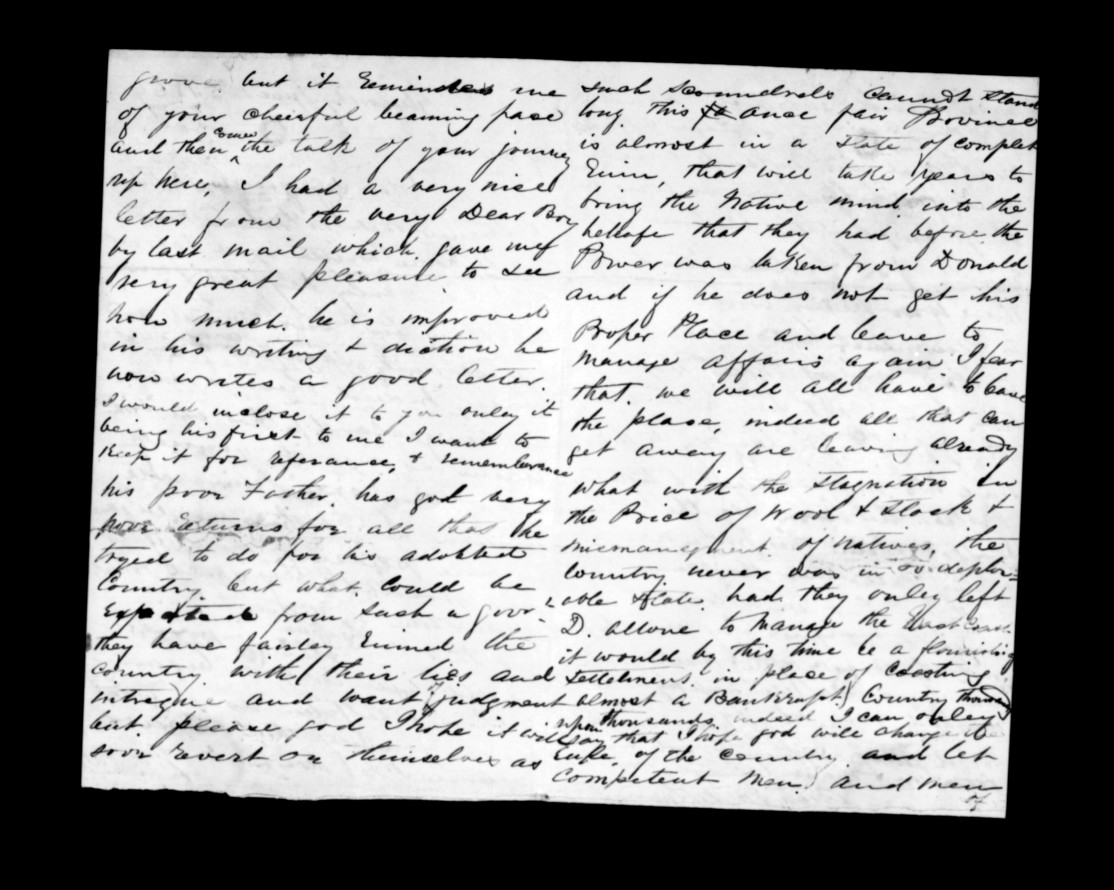 grove but it Reminded me
of your cheerful beaming face
and then Comes the talk of your journey
up here, I had a very nice
letter from the very Dear Boy
by last mail which gave me
very great pleasure to see
how much he is improved
in his writing & diction he
now writes a good letter.
I would inclose it to you onley it
being his first to me I want to
Keep it for referance, & rememberance
his poor Father has got very
poor Returns for all that he
tryed to do for his adobted
Country, but what could be
Expected from such a gover-
they have fairley Ruined the
country with their lies and
intregue and want of judgment
but please god I hope it will
soon Revert on themselves as
such scoundrels cannot stand
long. this once fair Province
is almost in a state of complet
Ruin, that will take years to
bring the Native mind into the
state that they had before the
Power was taken from Donald
and if he does not get his
Proper Place and leave to
manage affairs again I fear
that we will all have to leave
the place, indeed all that can
get away are leaving already
what with the stagnation in
the Price of Wool & Stock &
mismanagment of natives, the
country never was in so deplor=
=able state had they onley left
D. allone to manage the East Coast
it would by this time be a flourishing
settelment in place of Coasting
almost a Bankrupt Country thousands
upon thousands, indeed I can onley
say that I hope god will change the
Rule, of the country and let
Competent men, and men
of